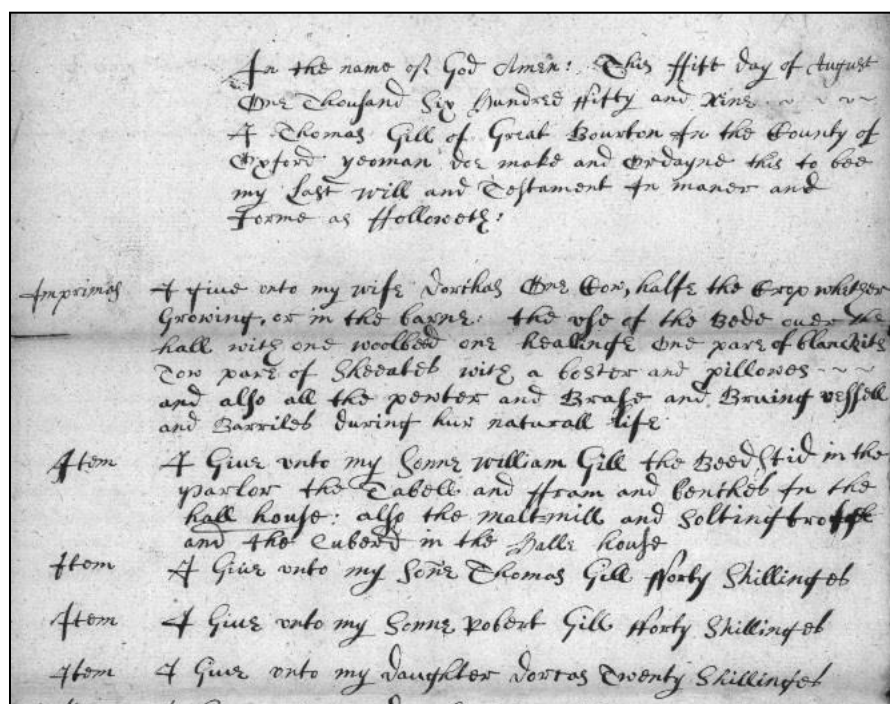 In the name of God Amen: This ffift day of August
One Thousand Six Hundred ffifty and Nine ~ ~ ~ ~
I Thomas Gill of Great Bourton In the County of
Oxford yeoman doe make and Ordayne this to bee
my Last will and Testament In maner and
forme as ffolloweth:
Imprimas I give unto my wife Dorthas One Cow, halfe the Crop whether
Growing, or in the barne: the use of the Bede over the
hall with one woolbeed one healinge One pare of blanckits
Tow pare of Sheeates with a boster and pillowes ~ ~ ~
and also all the pewter and Brase and Bruing vessell
and Barriles during hur naturall life
Item I Give unto my Sonne William Gill the Beed Stid in the
parlor the Tabell and ffram and benches In the
hall house: also the maltmill and
and the Cuberd in the Halle house
Item I Give unto my Sonne Thomas Gill fforty Shillinges
Item I Give unto my Sonne Robert Gill fforty Shillinges
Item I Give unto my daughter Dorcas Twenty Shillinges